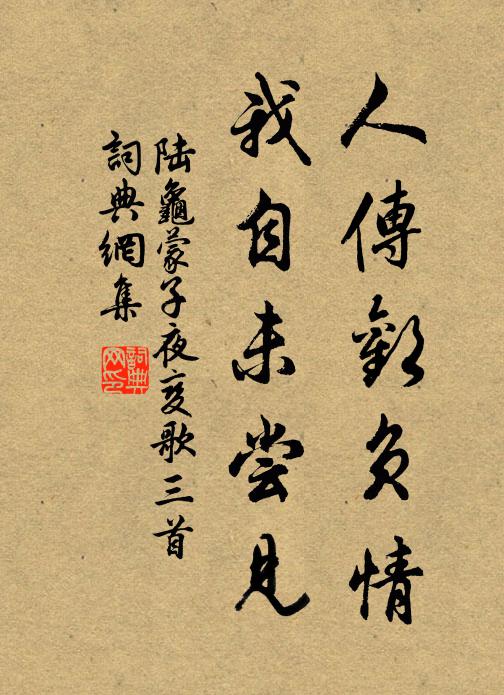 人傳歡負情
我自未嘗見
陆龜蒙子夜变歌三首
詞典網集
詞典网印